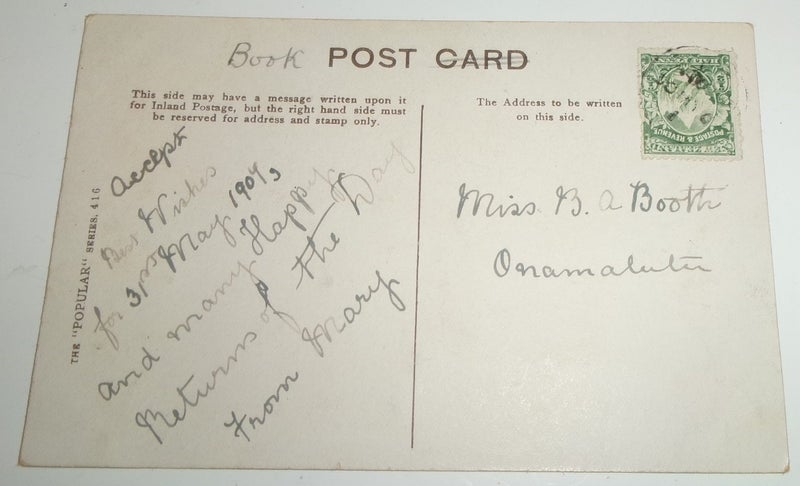 Book POST CARD
This side may have a message written upon it
for Inland Postage, but the right hand side must
be reserved for address and stamp only.
The Address to be written
on this side.
THE "POPULAR" SERIES. 416
Accept
Best Wishes
for 31st May 1907,
and many Happy
Returns of the Day
From Mary
Miss. B. A Booth
Onamalutu
POSTAGE & REVENUE
NEW ZEALAND